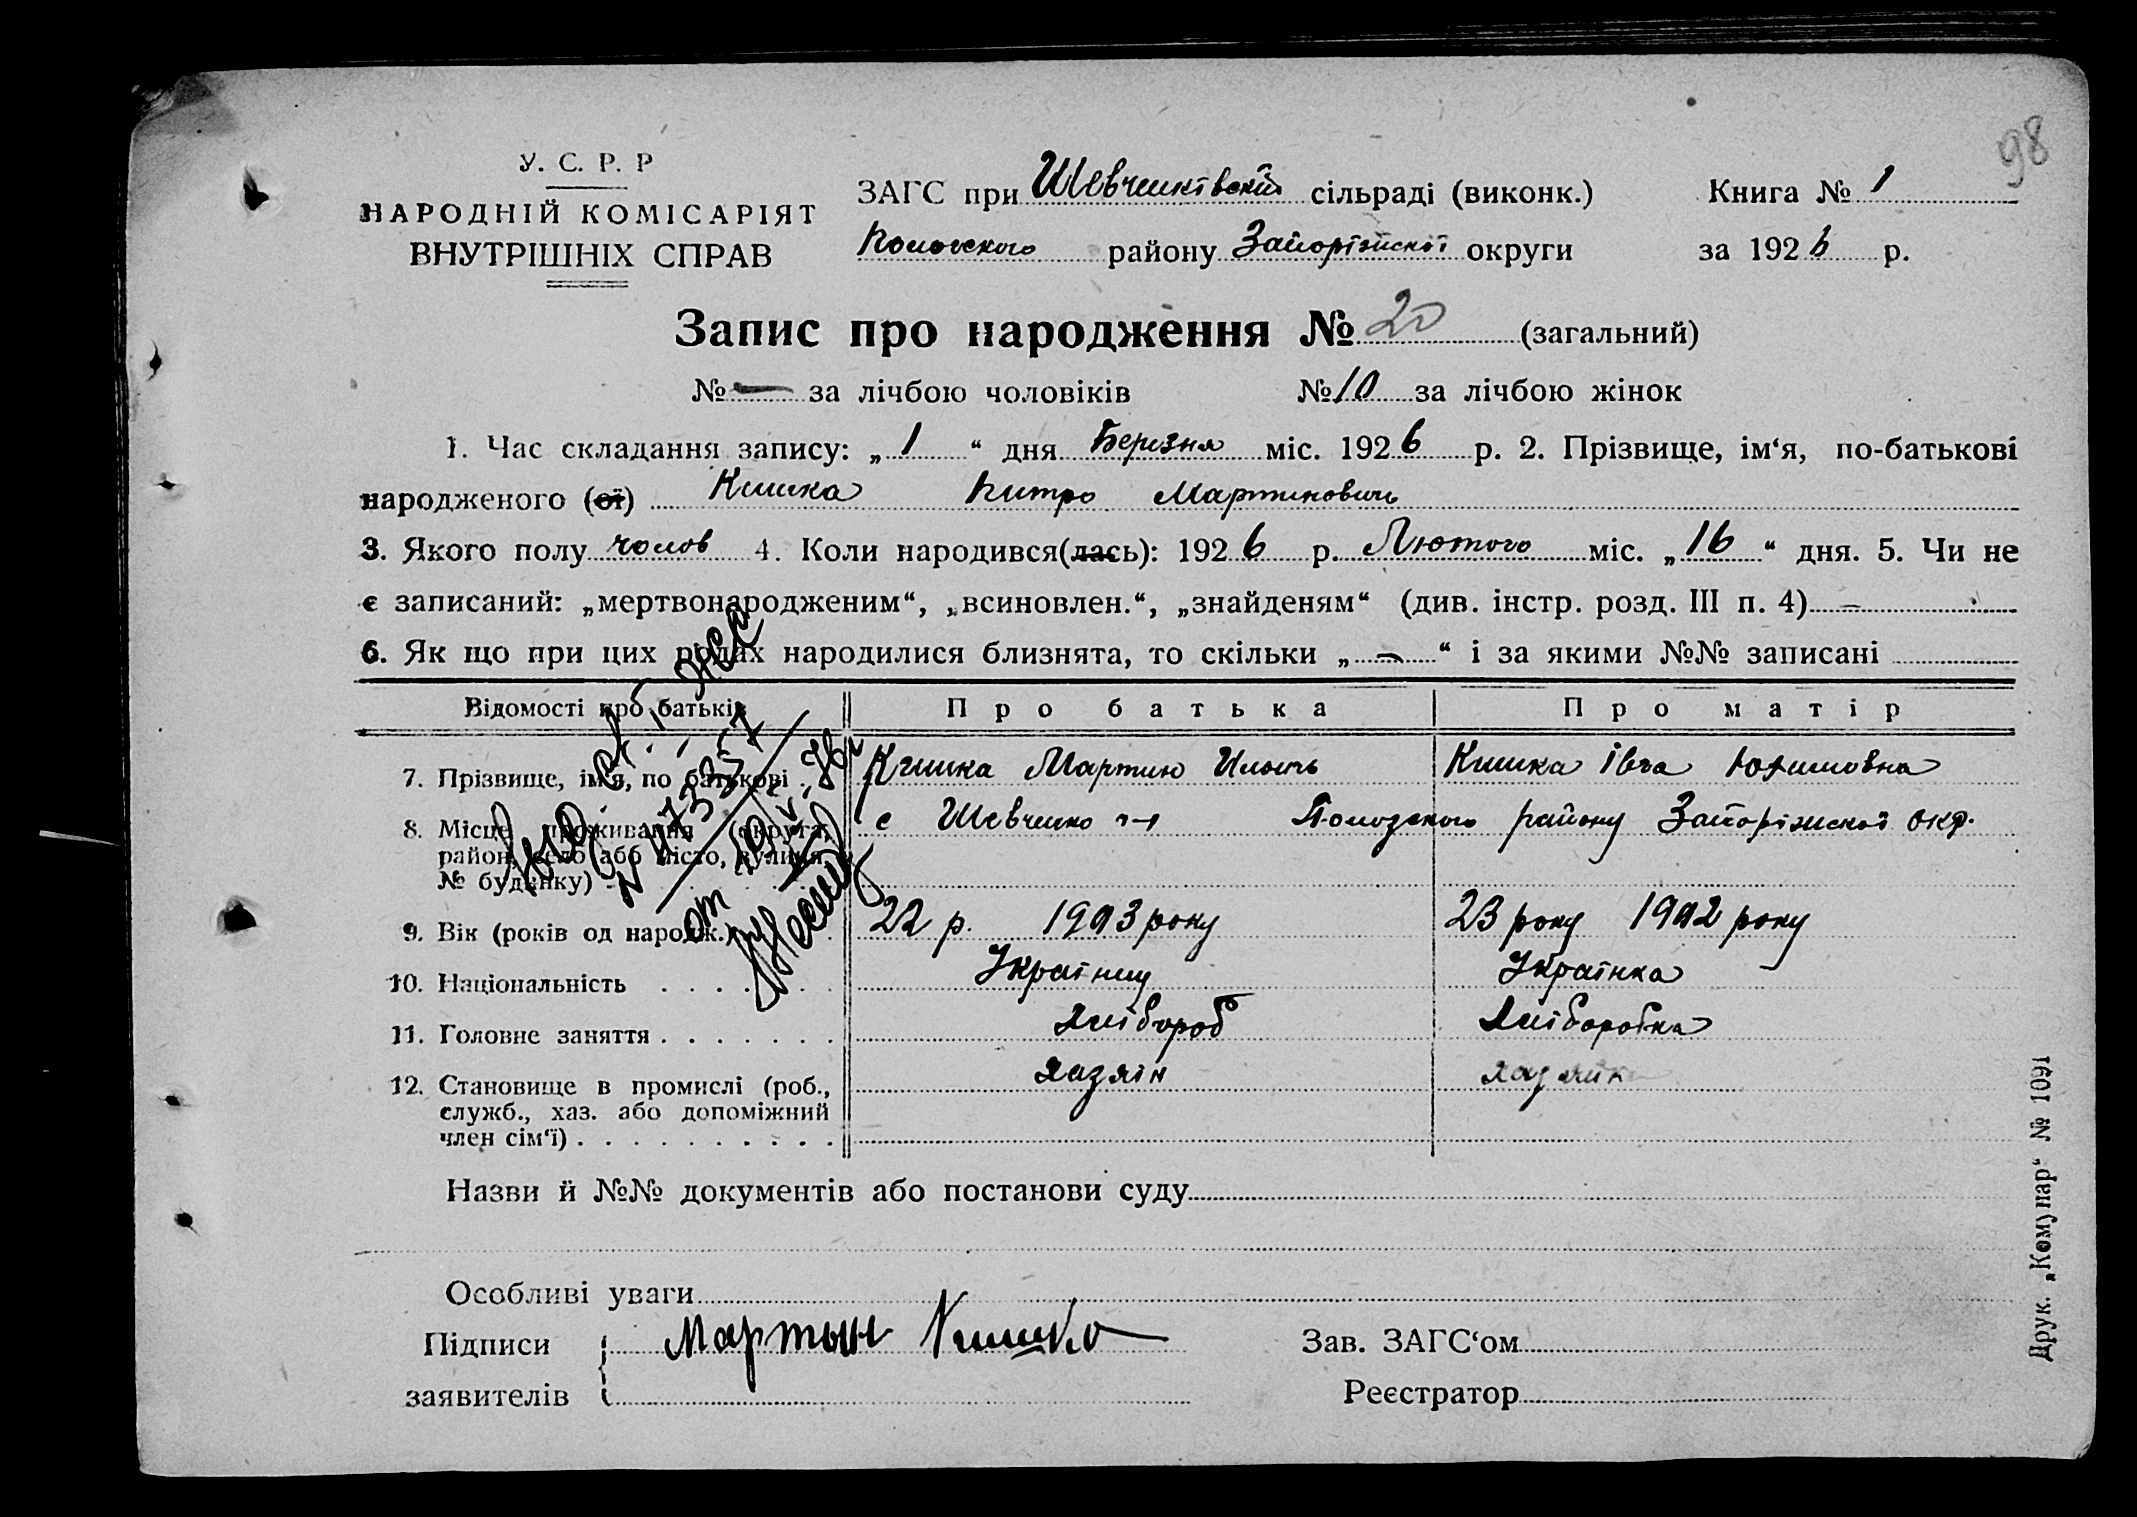 98
У. С. Р. Р
НАРОДНІЙ КОМІСАРІЯТ
ВНУТРІШНІХ СПРАВ
ЗАГС при Шевченківській сільраді (виконк.) Книга № 1
району Запоріжської округи за 1926 р.
Запис про народження № 20 (загальний)
№ — за лічбою чоловіків № 10 за лічбою жінок
1. Час складання запису: „1“ дня Березня міс. 1926 р. 2. Прізвище, ім‘я, по-батькові
народженого (ої) Кишка Мартинович
3. Якого полу чолов 4. Коли народився(лась): 1926 р. Лютого міс. „16“ дня. 5. Чи не
є записаний: „мертвонародженим“, „всиновлен.“, „знайденям“ (див. інстр. розд. III п. 4) —
6. Як що при цих родах народилися близнята, то скільки „—“ і за якими №№ записані
Відомості про батьків Про батька Про матір
7. Прізвище, ім‘я, по батькові . Кишка Мартин Кишка Івга Юхимовна
8. Місце проживання (округа, с Шевченко району Запоріжської окр.
район, село або місто, вулиця,
№ будинку)
9. Вік (років од народж.) 22 р. 1903 року 23 року 1902 року
10. Національність . . . . . Українец Українка
11. Головне заняття . . . . . . . Хлібороб Хліборобка
12. Становище в промислі (роб., Хазяїн
служб., хаз. або допоміжний
член сім‘ї) . . . . . . . . . .
Назви й №№ документів або постанови суду
Особливі уваги
Підписи Мартын Кишко Зав. ЗАГС‘ом
заявителів Реєстратор
Друк. „Комунар“ № 1091